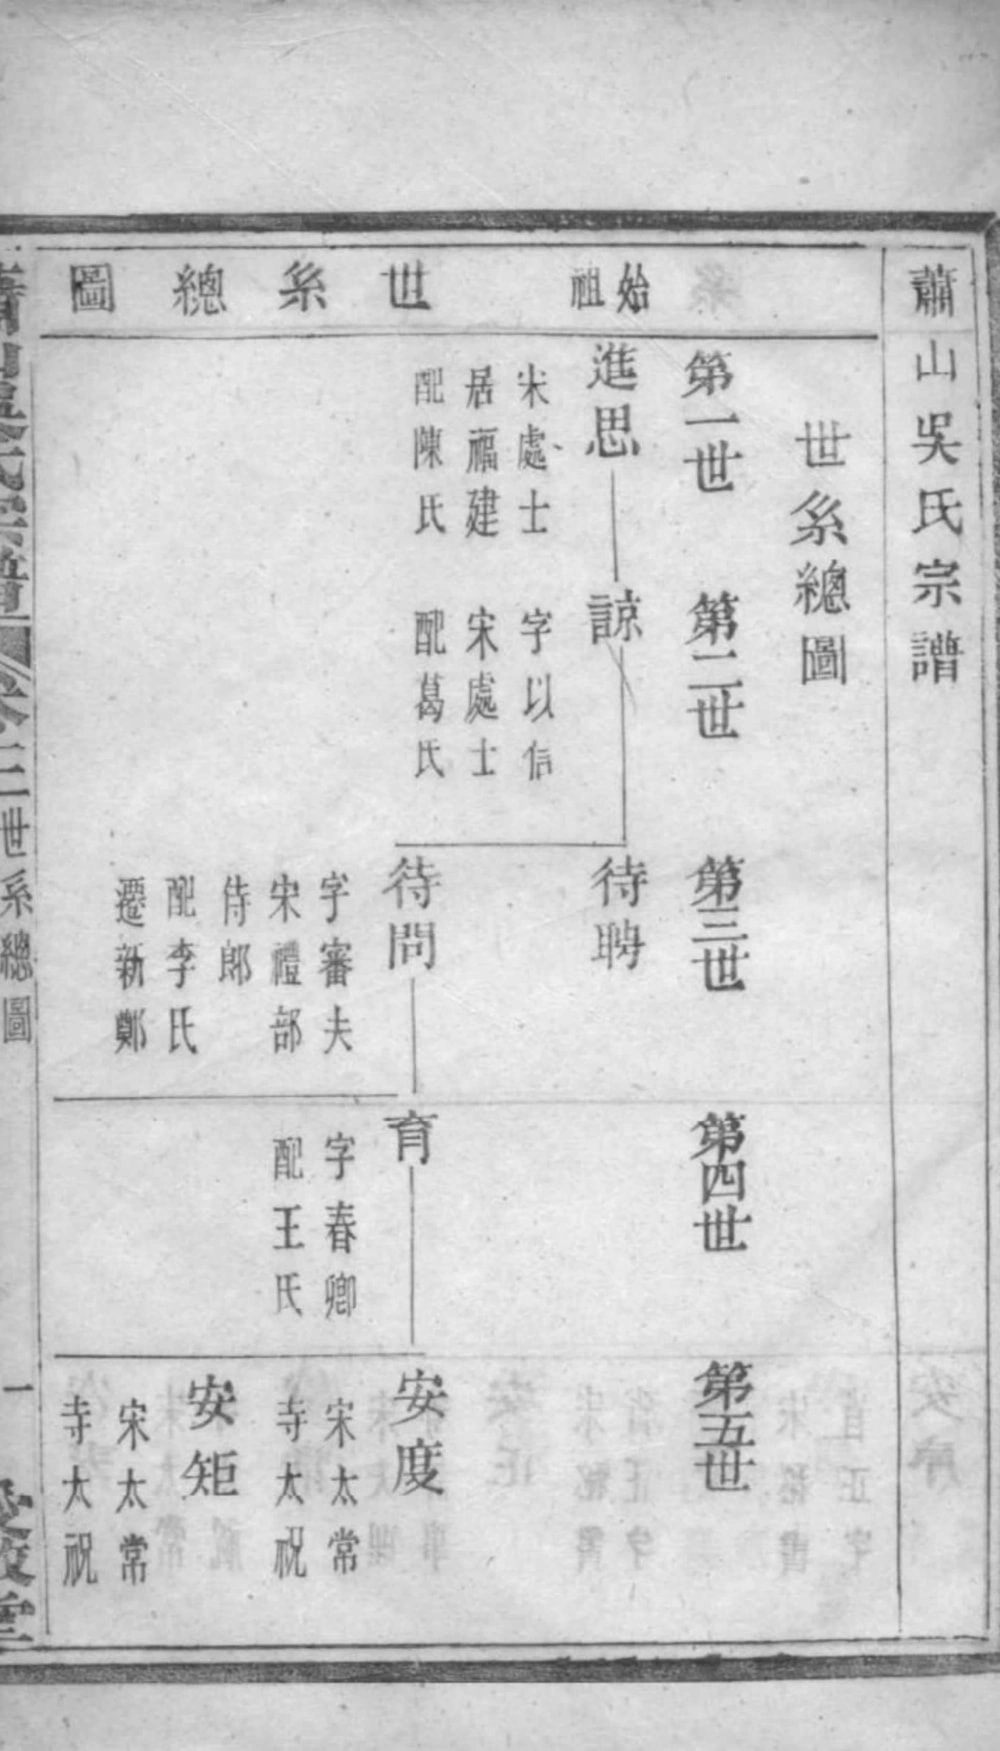 蕭山吳氏宗譜
世系總圖
始祖
世系總圖
第一世
進思
宋處士
居福建
配陳氏
第二世
諒
字以信
宋處士
配葛氏
第三世
待聘
待問
字審夫
宋禮部
侍郎
配李氏
遷新鄭
第四世
育
字春卿
配王氏
第五世
安度
宋太常
寺太祝
安矩
宋太常
寺太祝
世系總圖
一